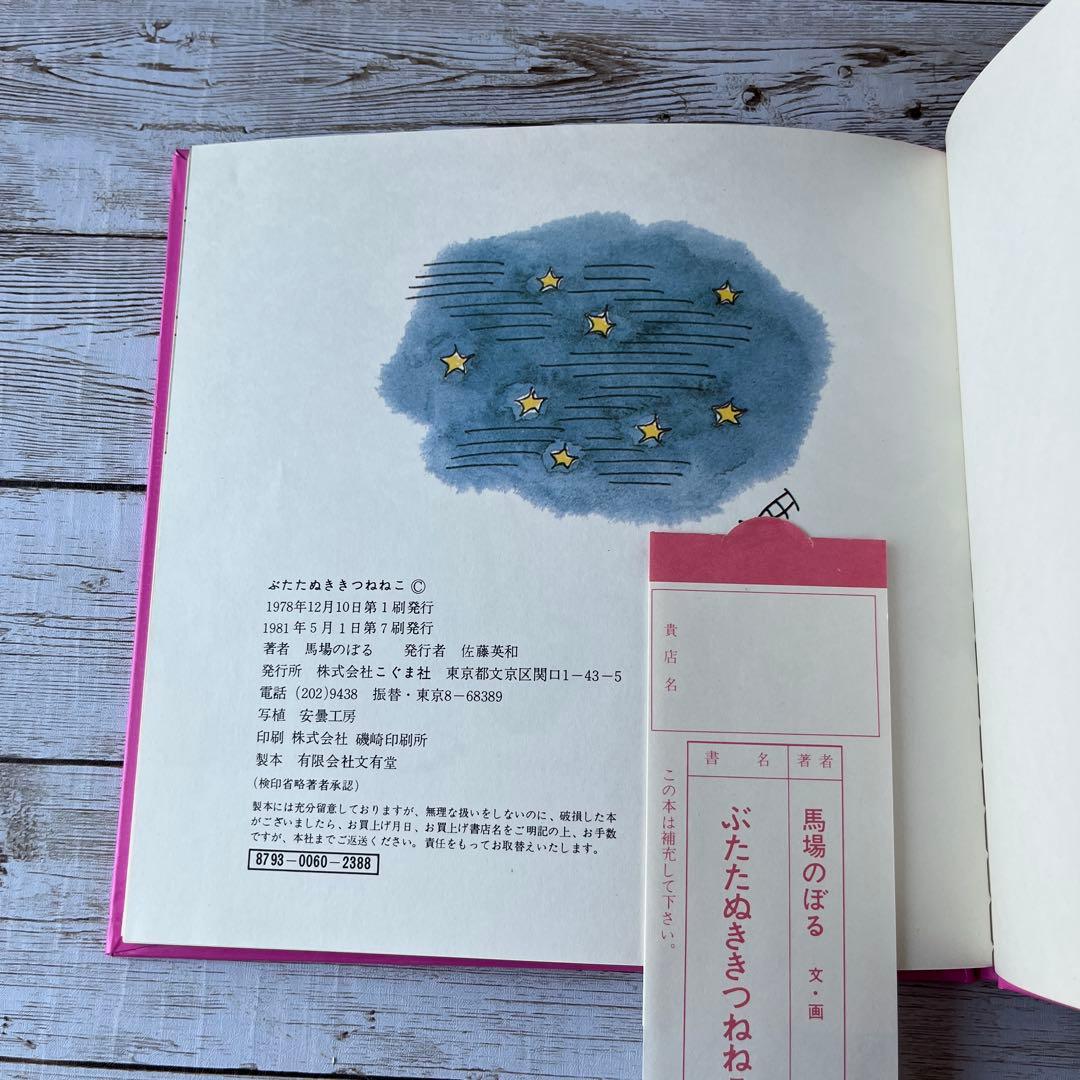 ぶたたぬききつねねこ ©
1978年12月10日第1刷発行
1981年5月1日第7刷発行
著者 馬場のぼる 発行者 佐藤英和
発行所 株式会社こぐま社 東京都文京区関口1−43−5
電話 (202)9438 振替・東京8−68389
写植 安曇工房
印刷 株式会社 磯崎印刷所
製本 有限会社文有堂
(検印省略著者承認)
製本には充分留意しておりますが、無理な扱いをしないのに、破損した本
がございましたら、お買上げ月日、お買上げ書店名をご明記の上、お手数
ですが、本社までご返送ください。責任をもってお取替えいたします。
8793−0060−2388
貴店名
著者
馬場のぼる 文・画
書名
ぶたたぬききつねね
この本は補充して下さい。